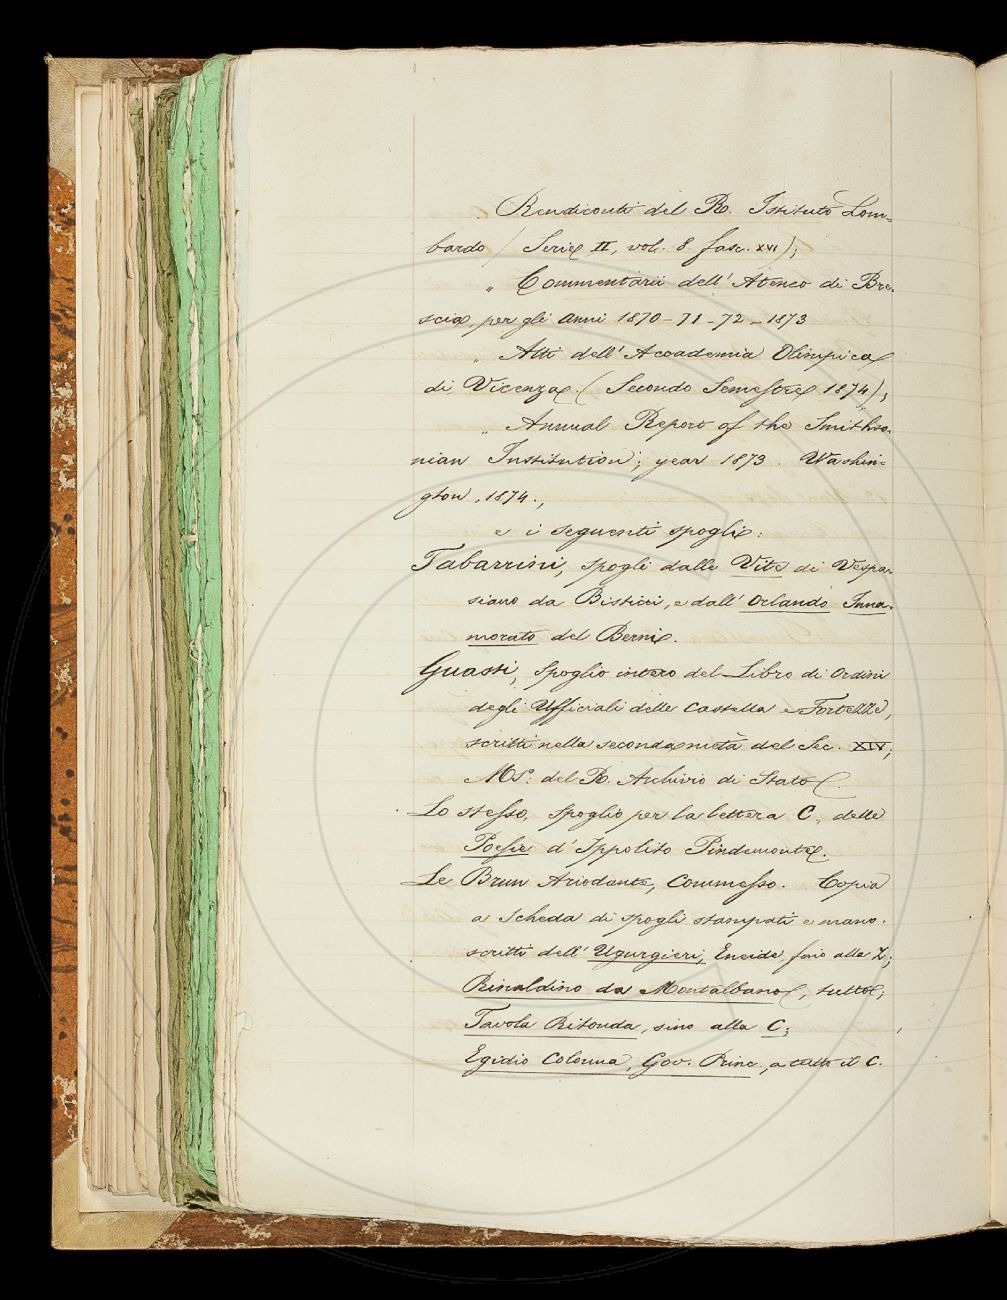 Rendiconti del R. Istituto Lom=
bardo (Serie II, vol. 8 fasc. XVI);
„ Commentarii dell' Ateneo di Bre-
scia, per gli anni 1870-71-72-1873
„ Atti dell' Accademia Olimpica
di Vicenza (Secondo Semestre 1874);
„ Annual Report of the Smithso-
nian Institution; year 1873. Washin=
gton, 1874.,
e i seguenti spogli:
Tabarrini, spogli dalle Vite di Vespa-
siano da Bisticci, e dall' Orlando Inna-
morato del Berni.
Guasti, Spoglio intero del Libro di Ordini
degli Ufficiali delle Castella e Fortezze,
scritti nella seconda metà del Sec. XIV;
Ms. del R. Archivio di Stato.
Lo stesso, Spoglio per la lettera C, delle
Poesie d' Ippolito Pindemonte.
Le Brun Ariodante, Commesso. Copia
a Scheda di spogli stampati e mano-
scritti dell' Ugurgieri, Eneide, fino alla Z;
Rinaldino da Montalbano, tutto;
Tavola Ritonda, sino alla C;
Egidio Colonna, Gov. Princ., a tutto il C.